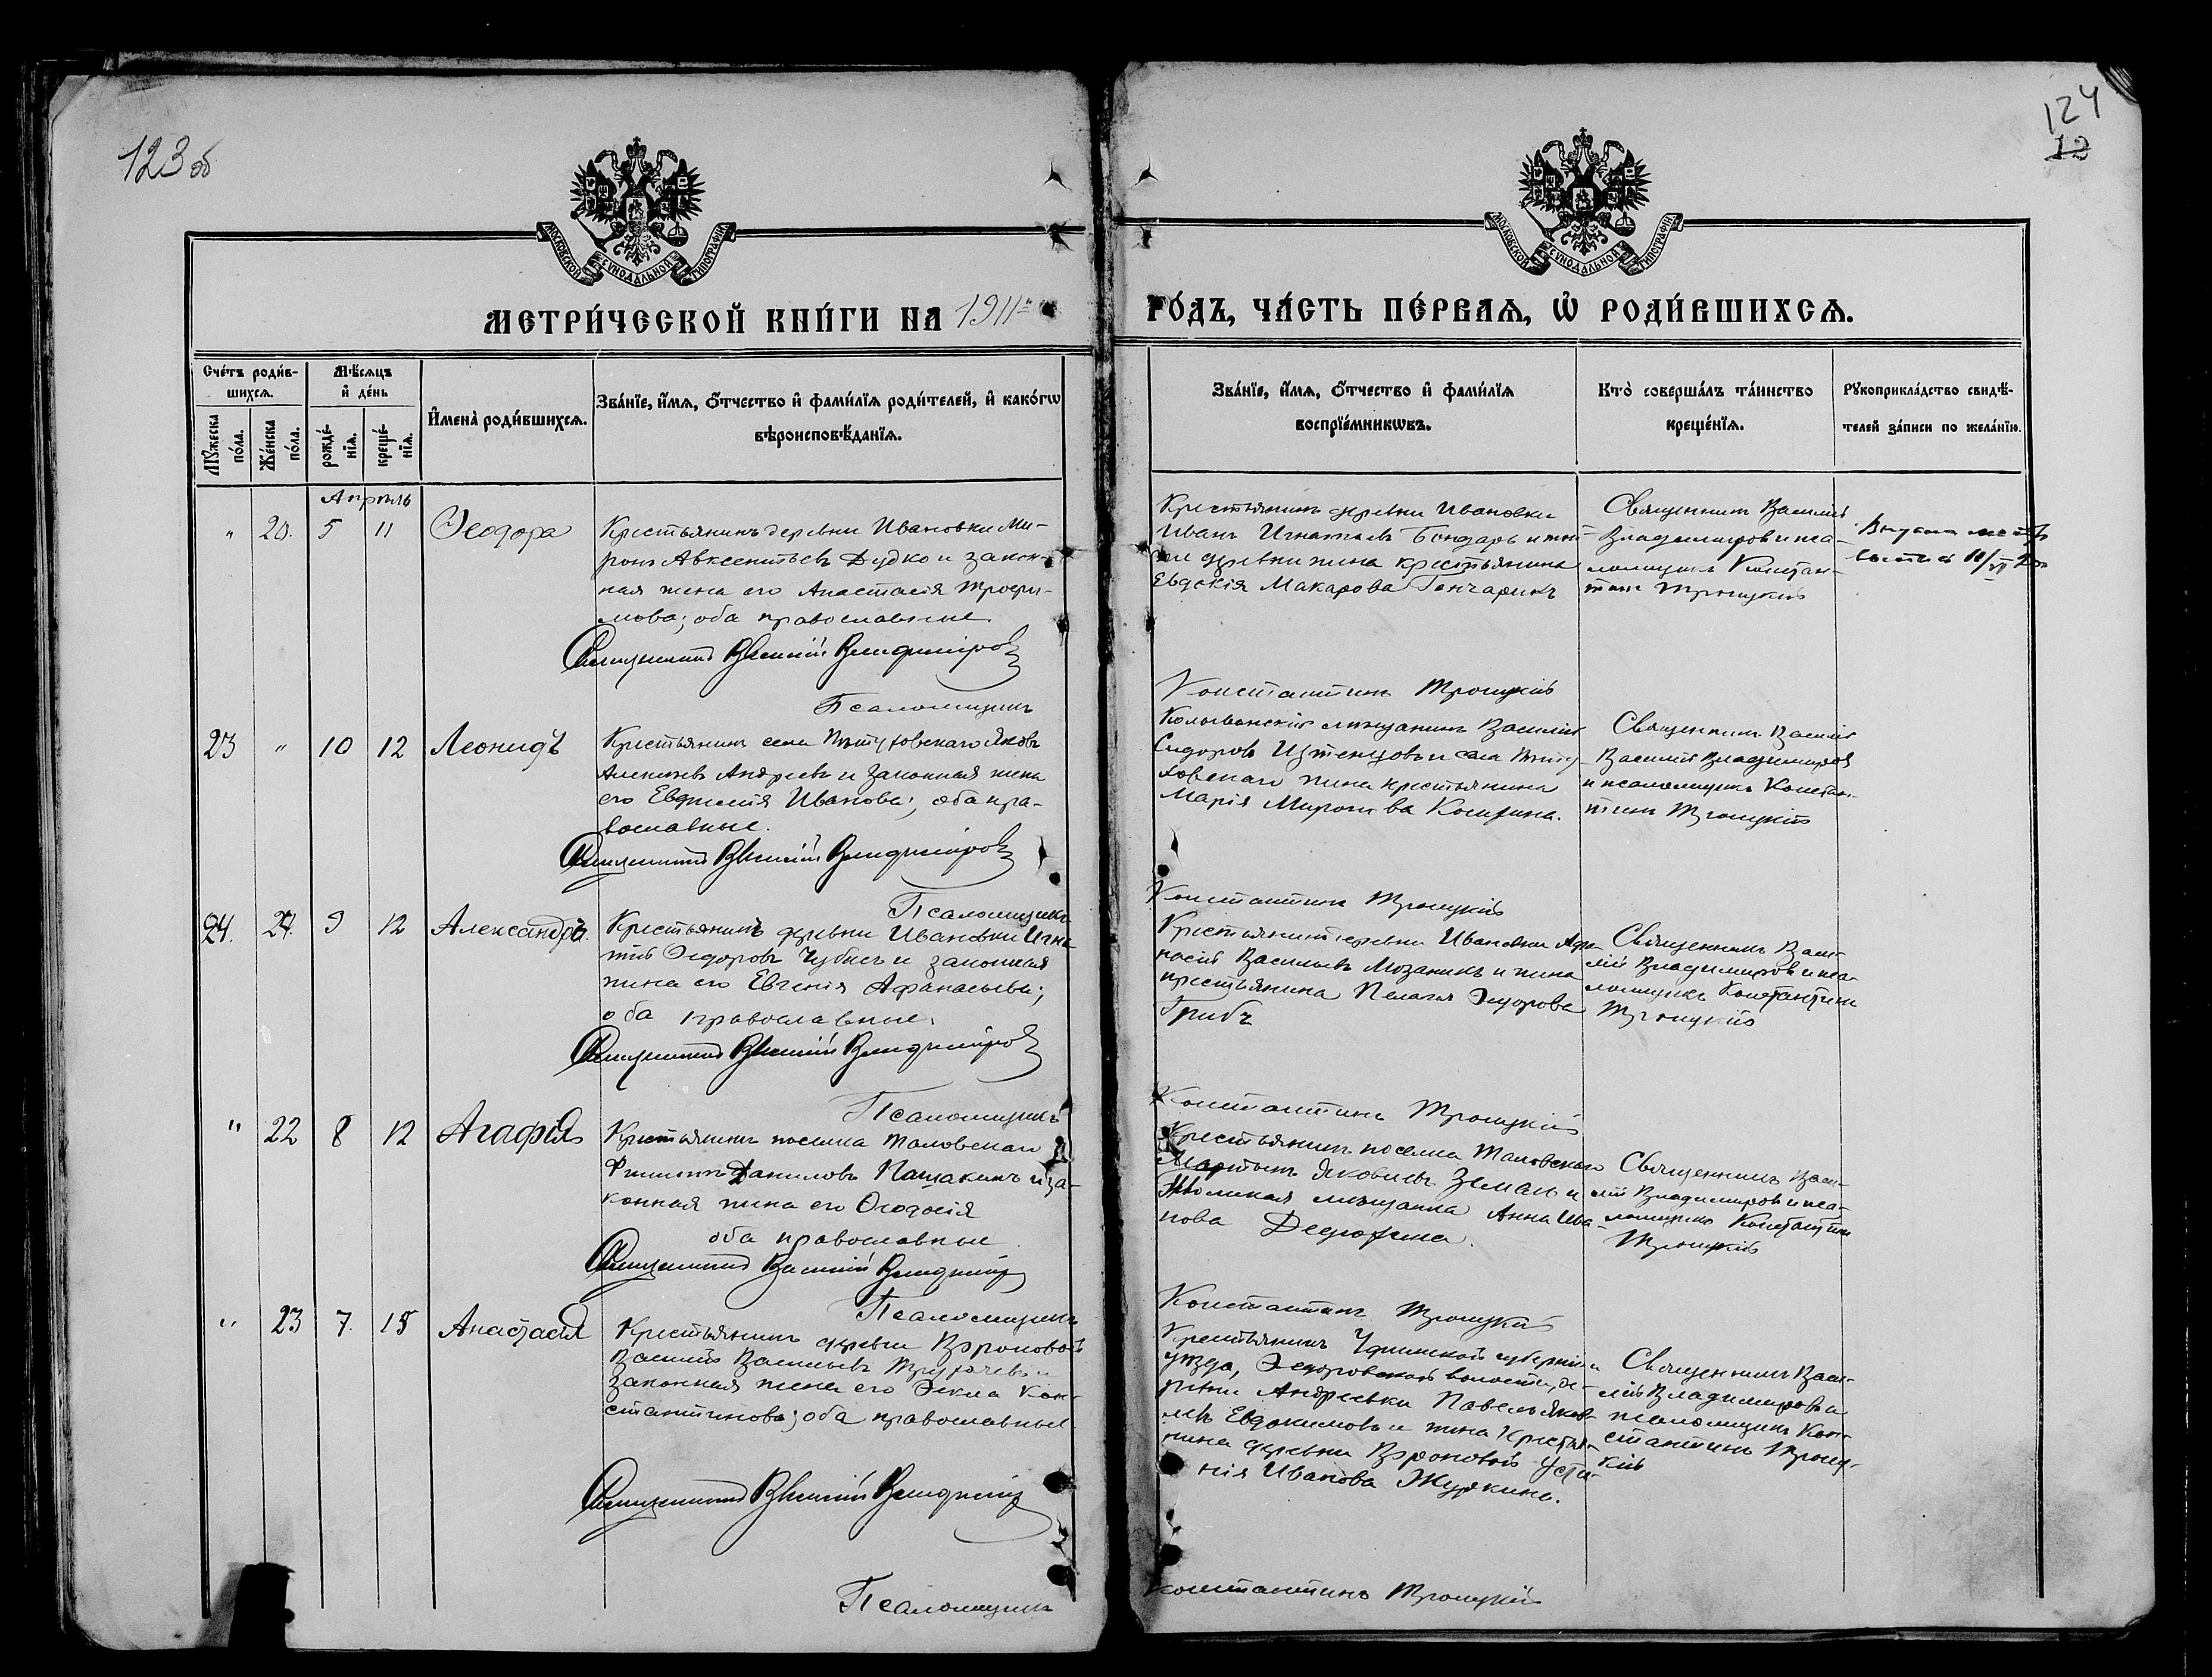 123 об
124
12
МОСКОВСКОЙ СѴНОДАЛЬНОЙ ТИПОГРАФІИ
МОСКОВСКОЙ СѴНОДАЛЬНОЙ ТИПОГРАФІИ
МЕТРИ́ЧЕСКОЙ КНИ́ГИ НА 1911
ГО́ДЪ, ЧА́СТЬ ПЕ́РВАѦ, Ѡ РОДИ́ВШИХСѦ.
Сче́тъ роди́в-
шихсѧ.
Мѣ́сѧцъ
и́ де́нь
Мꙋжеска
по́ла.
Же́нска
по́ла.
рожде́-
нїѧ.
креще́-
нїѧ.
И҆мена̀ роди́вшихсѧ.
Зва́нїе, и҆́мѧ, ѻ҆́тчество и҆ фами́лїѧ роди́телей, и҆ како́гѡ
вѣроисповѣ́данїѧ.
Зва́нїе, и҆́мѧ, ѻ҆́тчество и҆ фами́лїѧ
воспрїе́мникѡвъ.
Кто̀ соверша́лъ та́инство
креще́нїѧ.
Рꙋкоприкла́дство свидѣ́-
телей за́писи по жела́нїю.
Апрѣль
" 20. 5 11 Ѳеодора
Крестьянинъ деревни Ивановки Ми-
ронъ Авксентьевъ Дудко и закон-
ная жена его Анастасія Трофи-
мова; оба православные.
Священникъ Василій Владиміровъ
Псаломщикъ
Крестьянинъ деревни Ивановки
Иванъ Игнатьевъ Бондарь и той-
же деревни жена крестьянина
Евдокія Макарова Гончарикъ
Константинъ Троицкій
Священникъ Василій
Владиміровъ и пса-
ломщикъ Констан-
тинъ Троицкій
23 " 10 12 Леонидъ
Крестьянинъ села Яковъ
Алексѣевъ Андреевъ и законная жена
его Евфимія Иванова; оба пра-
вославные.
Священникъ Василій Владиміровъ
Псаломщикъ
Колыванскій мѣщанинъ Василій
Сидоровъ и села
жена крестьянина
Марія Миронова Косихина.
Константинъ Троицкій
Священникъ Василій
Василій Владиміровъ
и псаломщикъ Констан-
тинъ Троицкій
24. 24. 9 12 Александръ.
Крестьянинъ деревни Ивановки Игна-
тій Ѳедоровъ и законная
жена его Евгенія Афанасьева;
оба православные.
Священникъ Василій Владиміровъ
Псаломщикъ
Крестьянинъ деревни Ивановки Афа-
насій Васильевъ Мозаникъ и жена
крестьянина Пелагія Ѳедорова
Грибъ
Константинъ Троицкій
Священникъ Васи-
лій Владиміровъ и пса-
ломщикъ Константинъ
Троицкій
" 22 8 12 Агафія
Крестьянинъ поселка Таловскаго
Филиппъ Даниловъ Пащакинъ и за-
конная жена его Ѳеодосія
оба православные
Священникъ Василій Владиміровъ
Псаломщикъ
Крестьянинъ поселка Таловскаго
Мартынъ Яковлевъ Земань и
мѣщанка Анна Ива-
нова Дедюхина.
Константинъ Троицкій
Священникъ Васи-
лій Владиміровъ и пса-
ломщикъ Константинъ
Троицкій
" 23 7. 15 Анастасія
Крестьянинъ деревни Вороновой
Василій Васильевъ Трубачевъ и
законная жена его Ѳекла Кон-
стантинова; оба православные
Священникъ Василій Владиміровъ
Псаломщикъ
Крестьянинъ Уфимской губерніи и
уѣзда, Ѳедоровской волости, де-
ревни Андреевки Павелъ Яков-
левъ Евдокимовъ и жена крестья-
нина деревни Вороновой Усти-
нія Иванова Журкина.
Константинъ Троицкій
Священникъ Васи-
лій Владиміровъ и
псаломщикъ Кон-
стантинъ Троиц-
кій